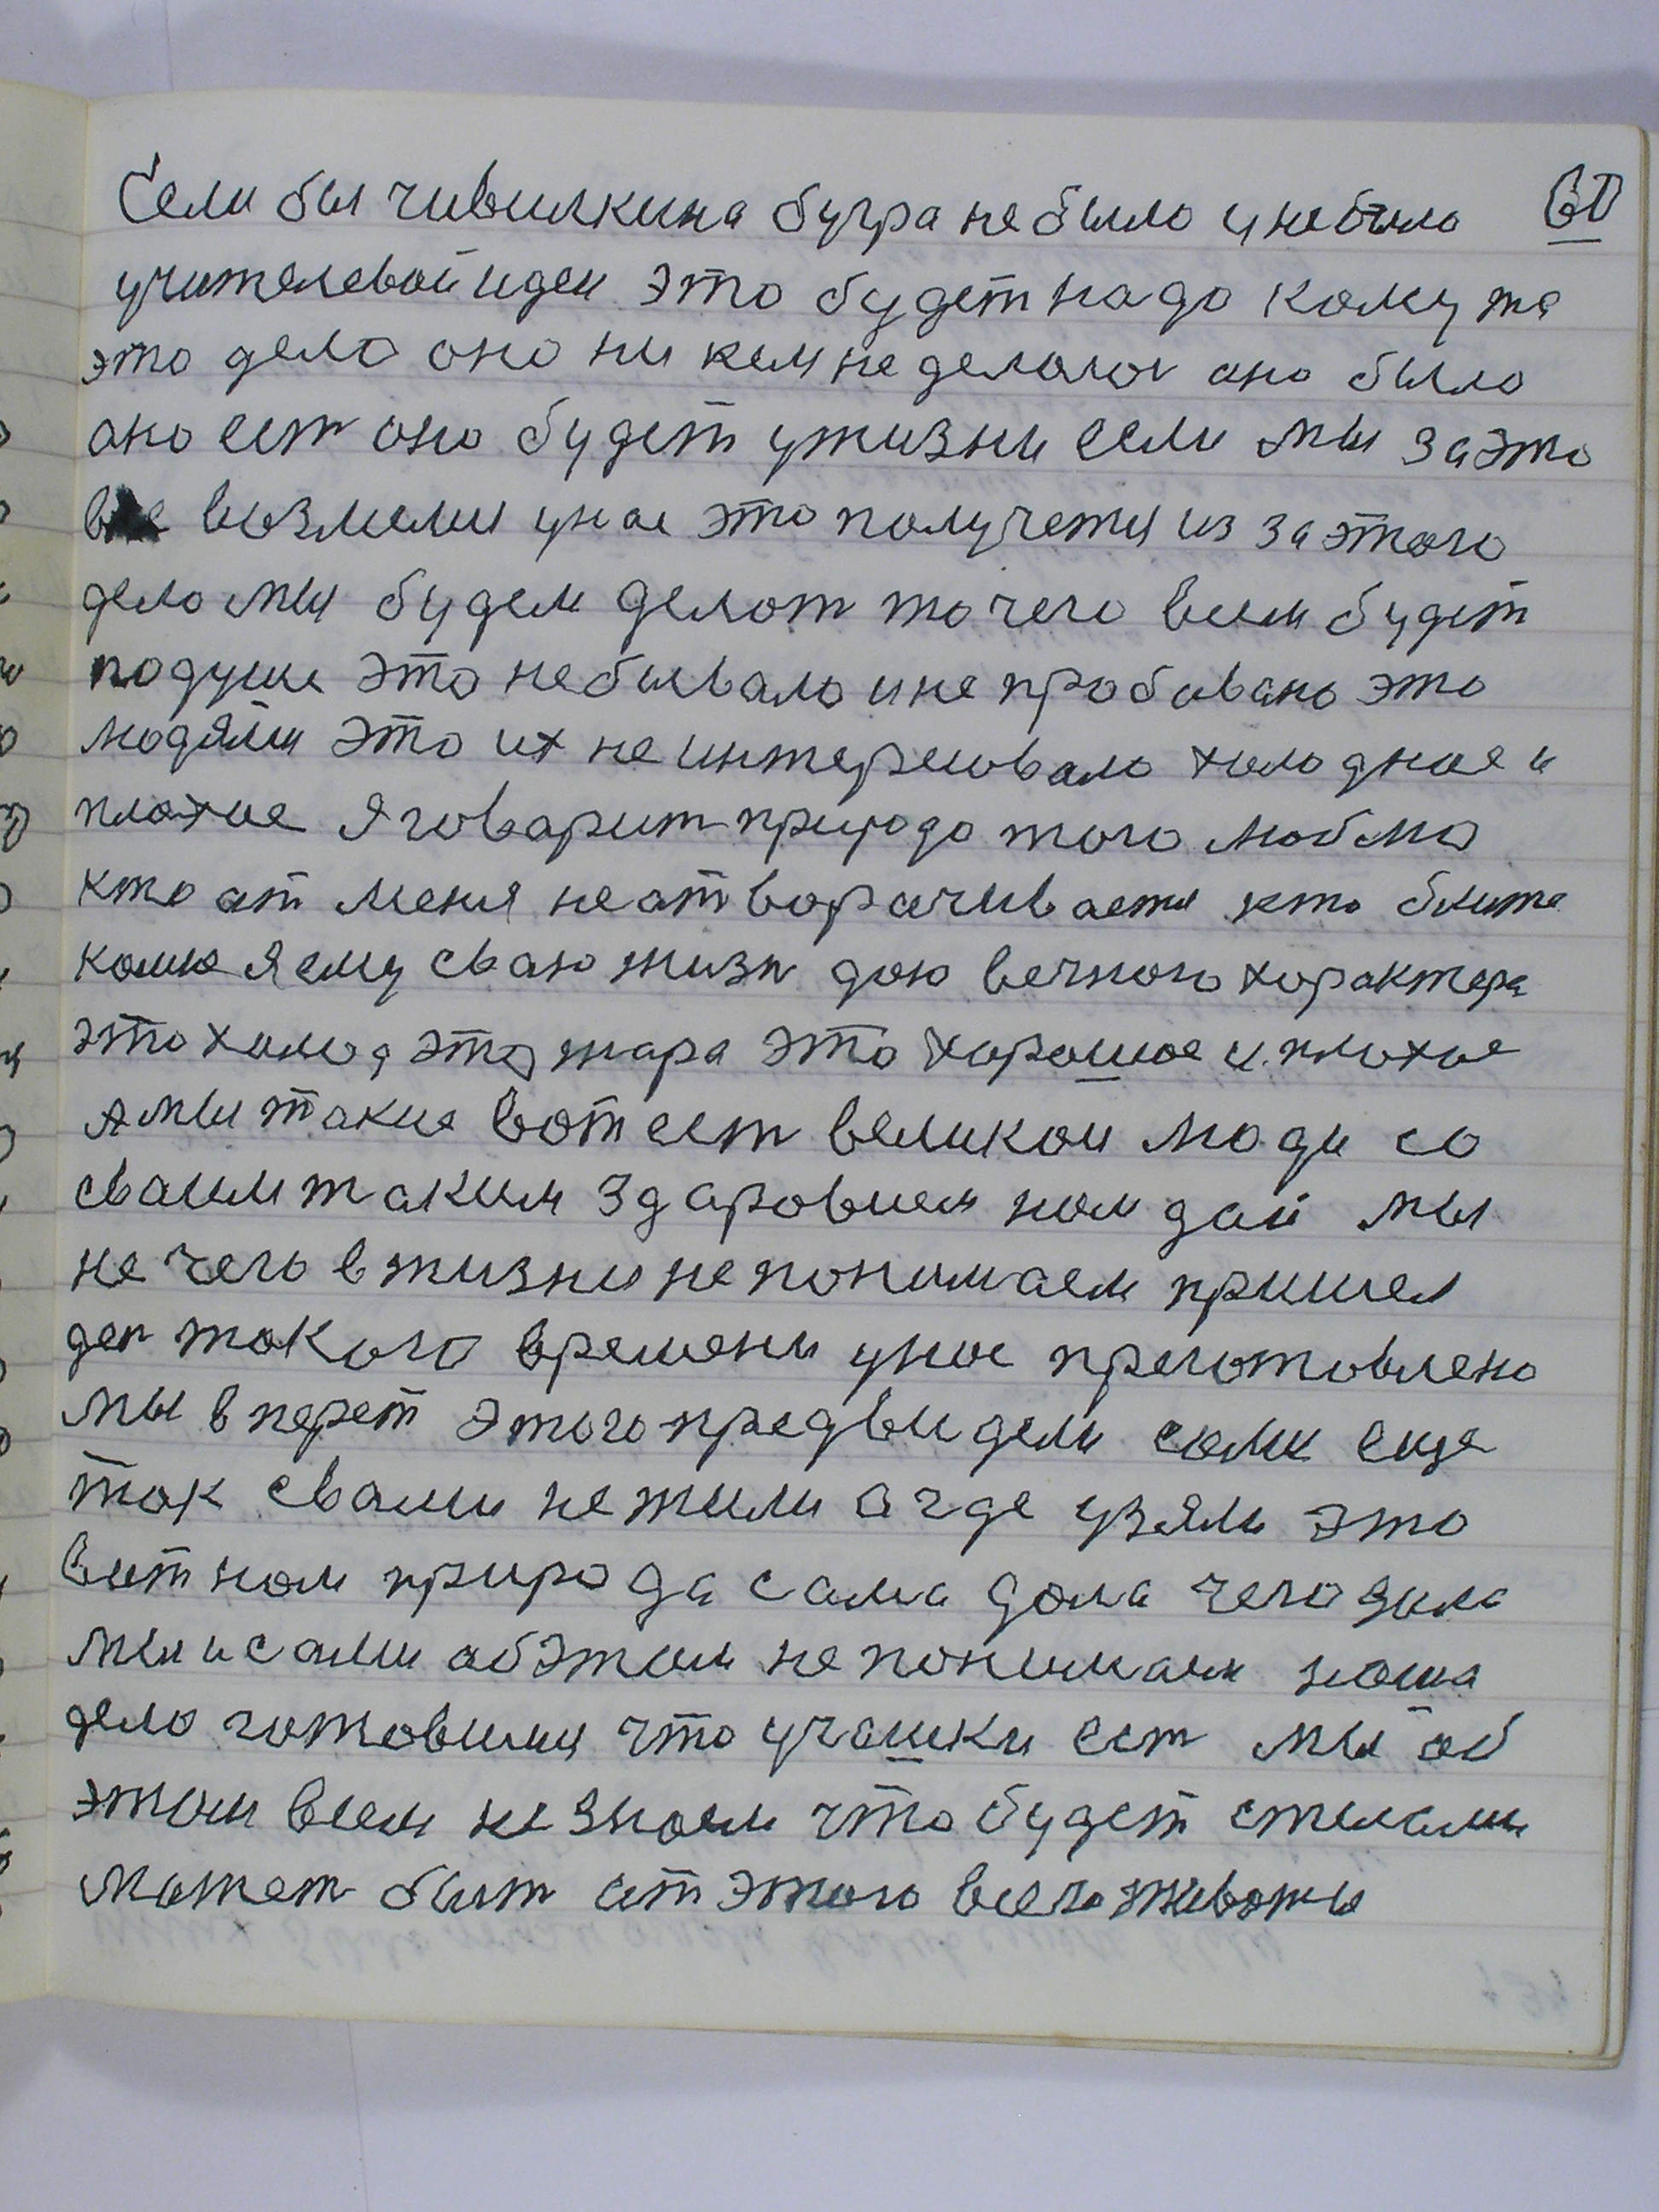 Если бы чивилкина бугра не было у не было 60
учителевой идеи это будет надо кому же
это дело оно ни кем не делолос оно было
оно ест оно будет у жизни если мы за это
все возмемся у нас это получется из за этого
дело мы будем делот то чего всем будет
по душе это не бывало и не пробовано это
людями это их не интересовало холодное и
плохое я говарит природа того люблю
кто от меня не отворачивается кто ближе
комне я ему сваю жизн даю вечного характера
это холод это жара это хорошое и плохое
а мы такие вот ест великои люди со
сваим таким здаровием ном дай мы
не чего в жизни не понимаем пришел
ден такого времени у нас преготовлено
мы в перет этого предвидели сами еще
так с вами не жили а где узяли это
вот ном природа сама дола чего дала
мы и сами об этом не понимаем ноша
дело готовимся что у чашки ест мы об
этом всем не знаем что будет стелами
может быт от этого всего животы